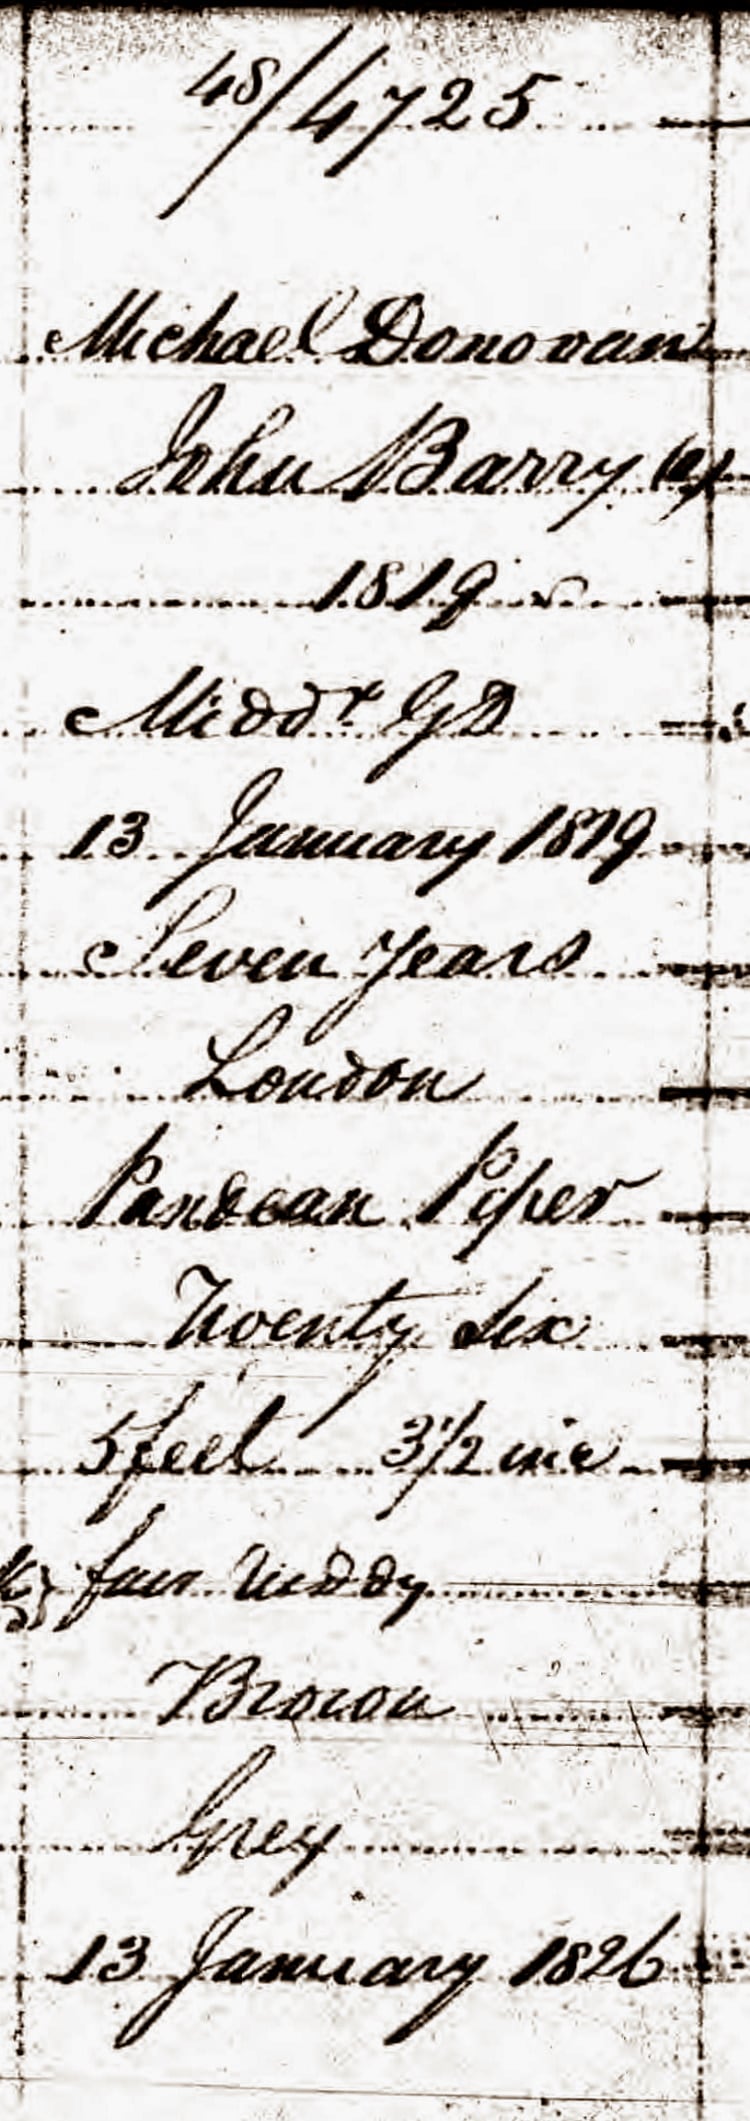 48/4725
Michael Donovan
John Barry (2)
1819
Middx GD
13 January 1819
Seven Years
London
Pandean Piper
Twenty Six
5 feet 3 1/2 inc
fair ruddy
Brown
Grey
13 January 1826